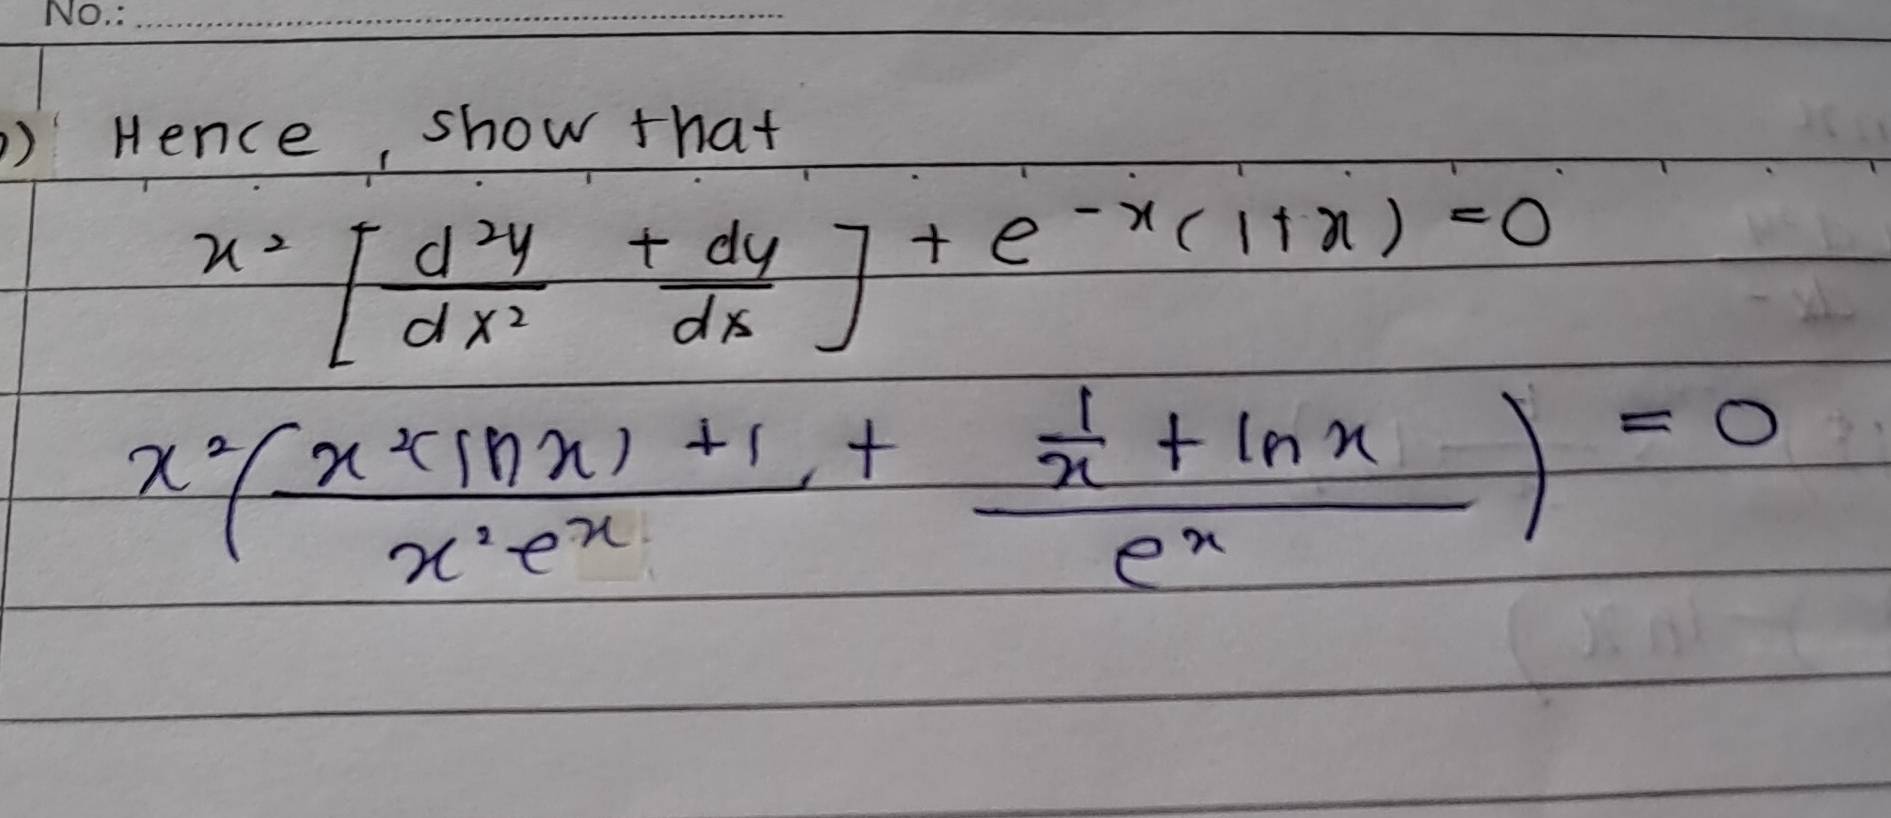 No.:
) Hence, show that
x² [ d²y/dx² + dy/dx ] + e^-x (1+x) = 0
x² ( (x²(ln x) + 1)/(x² e^x) + (1/x + ln x)/(e^x) ) = 0